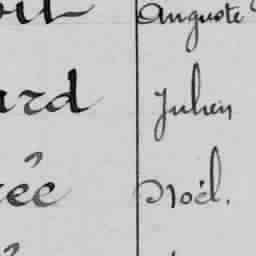 Auguste
ard Julien
rée Noël.